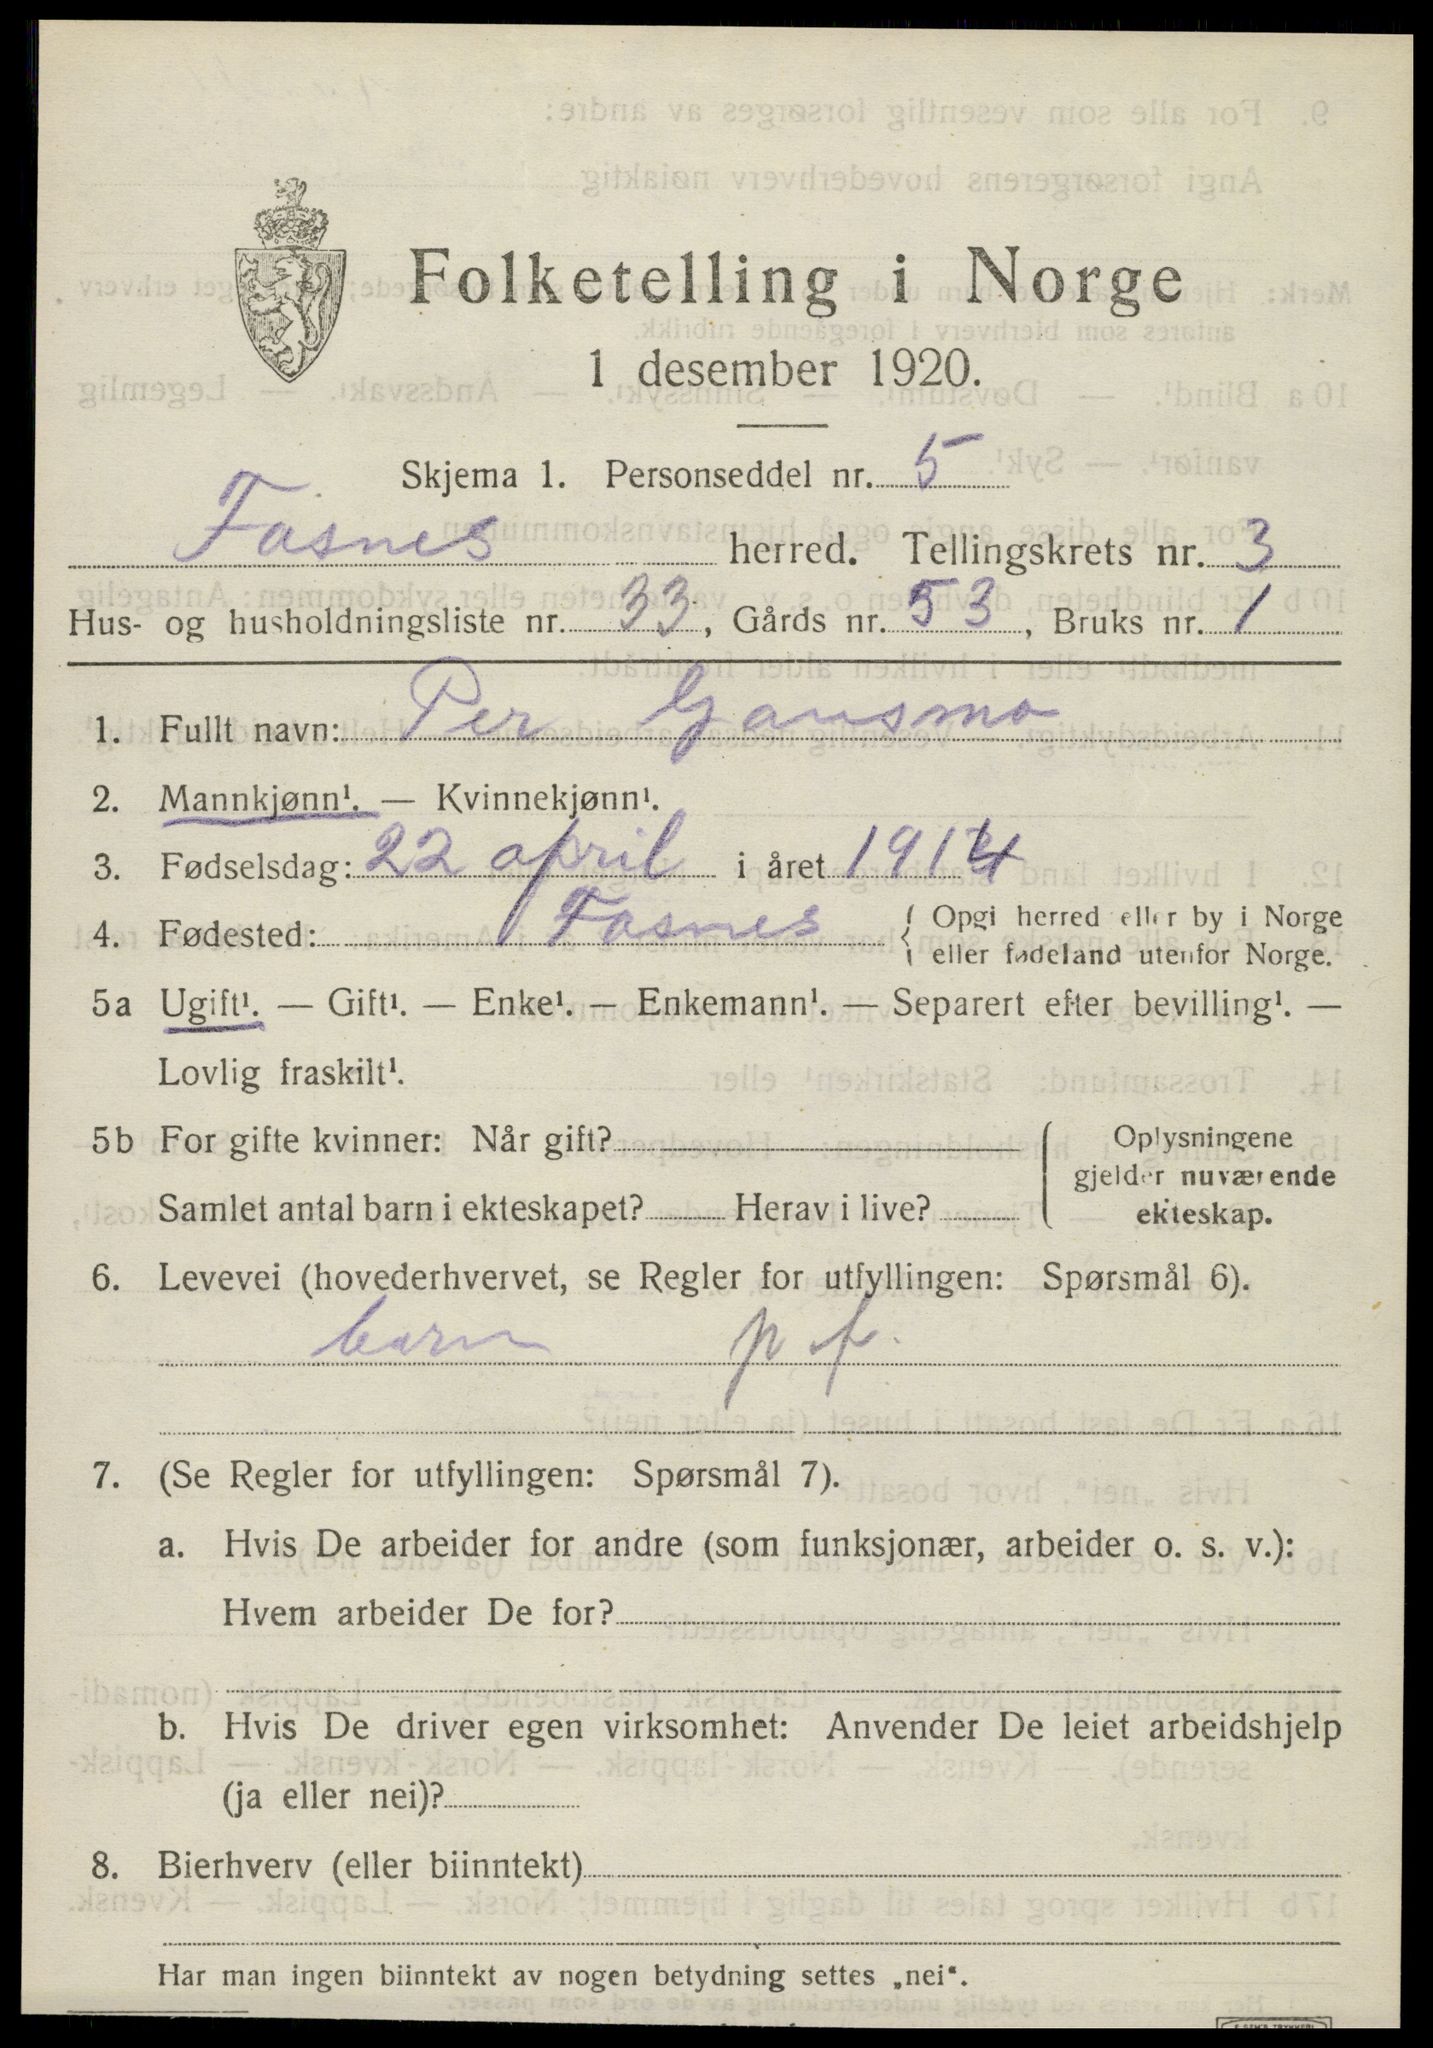 Folketelling i Norge
1 desember 1920.
Skjema 1. Personseddel nr. 5
Fosnes herred. Tellingskrets nr. 3
Hus- og husholdningsliste nr. 33, Gårds nr. 53, Bruks nr. 1
1. Fullt navn: Per Gansmo
2. Mannkjønn¹. — Kvinnekjønn¹.
3. Fødselsdag: 22 april i året 1914
4. Fødested: Fosnes { Opgi herred eller by i Norge
eller fødeland utenfor Norge.
5a Ugift¹. — Gift¹. — Enke¹. — Enkemann¹. — Separert efter bevilling¹. —
Lovlig fraskilt¹.
5b For gifte kvinner: Når gift?
Oplysningene
gjelder nuværende
ekteskap.
Samlet antal barn i ekteskapet? Herav i live?
6. Levevei (hovederhvervet, se Regler for utfyllingen: Spørsmål 6).
barn p f.
7. (Se Regler for utfyllingen: Spørsmål 7).
a. Hvis De arbeider for andre (som funksjonær, arbeider o. s. v.):
Hvem arbeider De for?
b. Hvis De driver egen virksomhet: Anvender De leiet arbeidshjelp
(ja eller nei)?
8. Bierhverv (eller biinntekt)
Har man ingen biinntekt av nogen betydning settes „nei“.